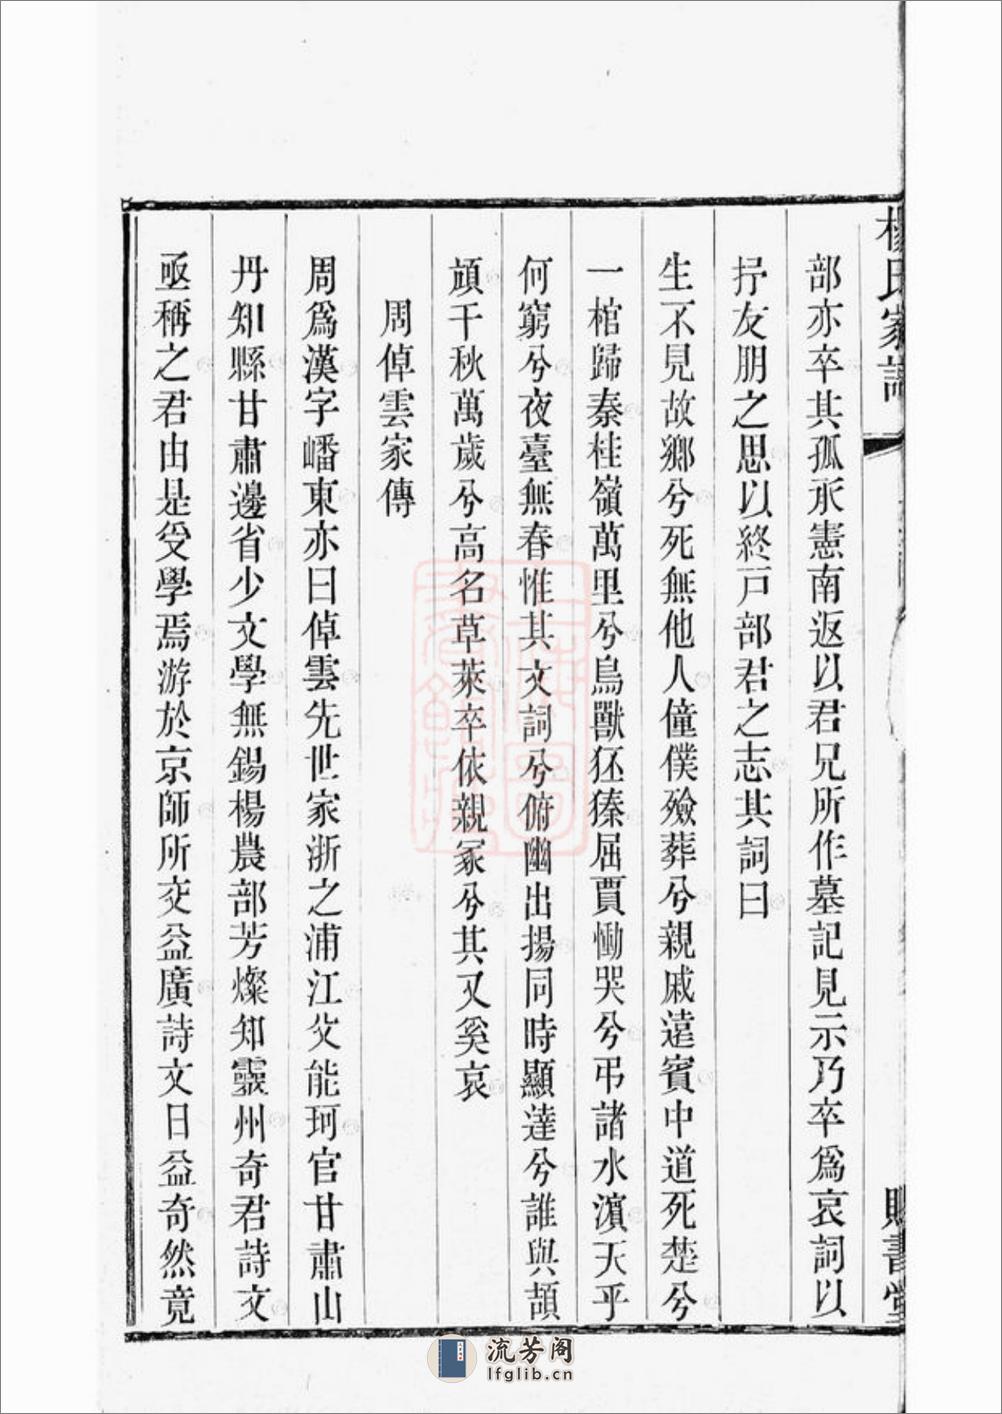 楊氏家譜
賜書堂
部亦卒其孤承憲南返以君兄所作墓記見示乃卒爲哀詞以
抒友朋之思以終戸部君之志其詞曰
生不見故鄉兮死無他人僮僕殮葬兮親戚遠賓中道死楚兮
一棺歸秦桂嶺萬里兮鳥獸狉獉屈賈慟哭兮弔諸水濵天乎
何窮兮夜臺無春惟其文詞兮俯幽出揚同時顯達兮誰與頡
頏千秋萬歲兮高名草萊卒依親冢兮其又奚哀
周倬雲家傳
周爲漢字嶓東亦曰倬雲先世家浙之浦江父能珂官甘肅山
丹知縣甘肅邊省少文學無錫楊農部芳燦知靈州奇君詩文
亟稱之君由是受學焉游於京師所交益廣詩文日益奇然竟
流芳阁
lfglib.cn